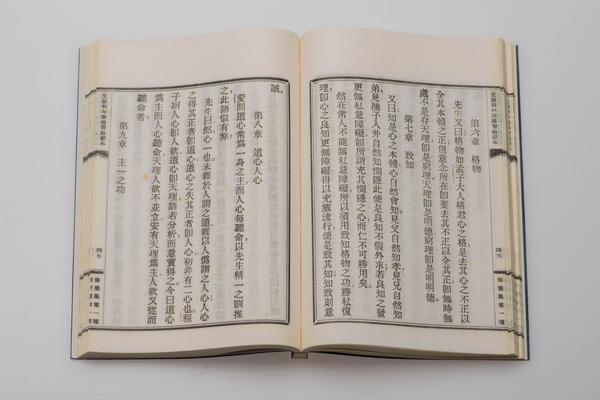 第六章 格物
先生又曰格物如孟子大人格君心之格是去其心之不正以
全其本體之正但意念所在卽要去其不正以全其正卽無時無
處不是存天理卽是窮理天理卽是明德窮理卽是明明德
第七章 致知
又曰知是心之本體心自然會知見父自然知孝見兄自然知
弟見孺子入井自然知惻隱此便是良知不假外求若良知之發
更無私意障礙卽所謂充其惻隱之心而仁不可勝用矣
然在常人不能無私意障礙所以須用致知格物之功勝私復
理卽心之良知更無障礙得以充塞流行便是致其知知致則意
四六
誠。
第八章 道心人心
愛問道心常爲一身之主而人心每聽命以先生精一之訓推
之此語似有弊
先生曰然心一也未雜於人謂之道心雜以人僞謂之人心人心
之得其正者卽道心道心之失其正者卽人心初非有二心也程
子謂人心卽人欲道心卽天理語若分析而意實得之今曰道心
爲主而人心聽命是二心也天理人欲不並立安有天理爲主人欲又從而
聽命者
第九章 主一之功
四七